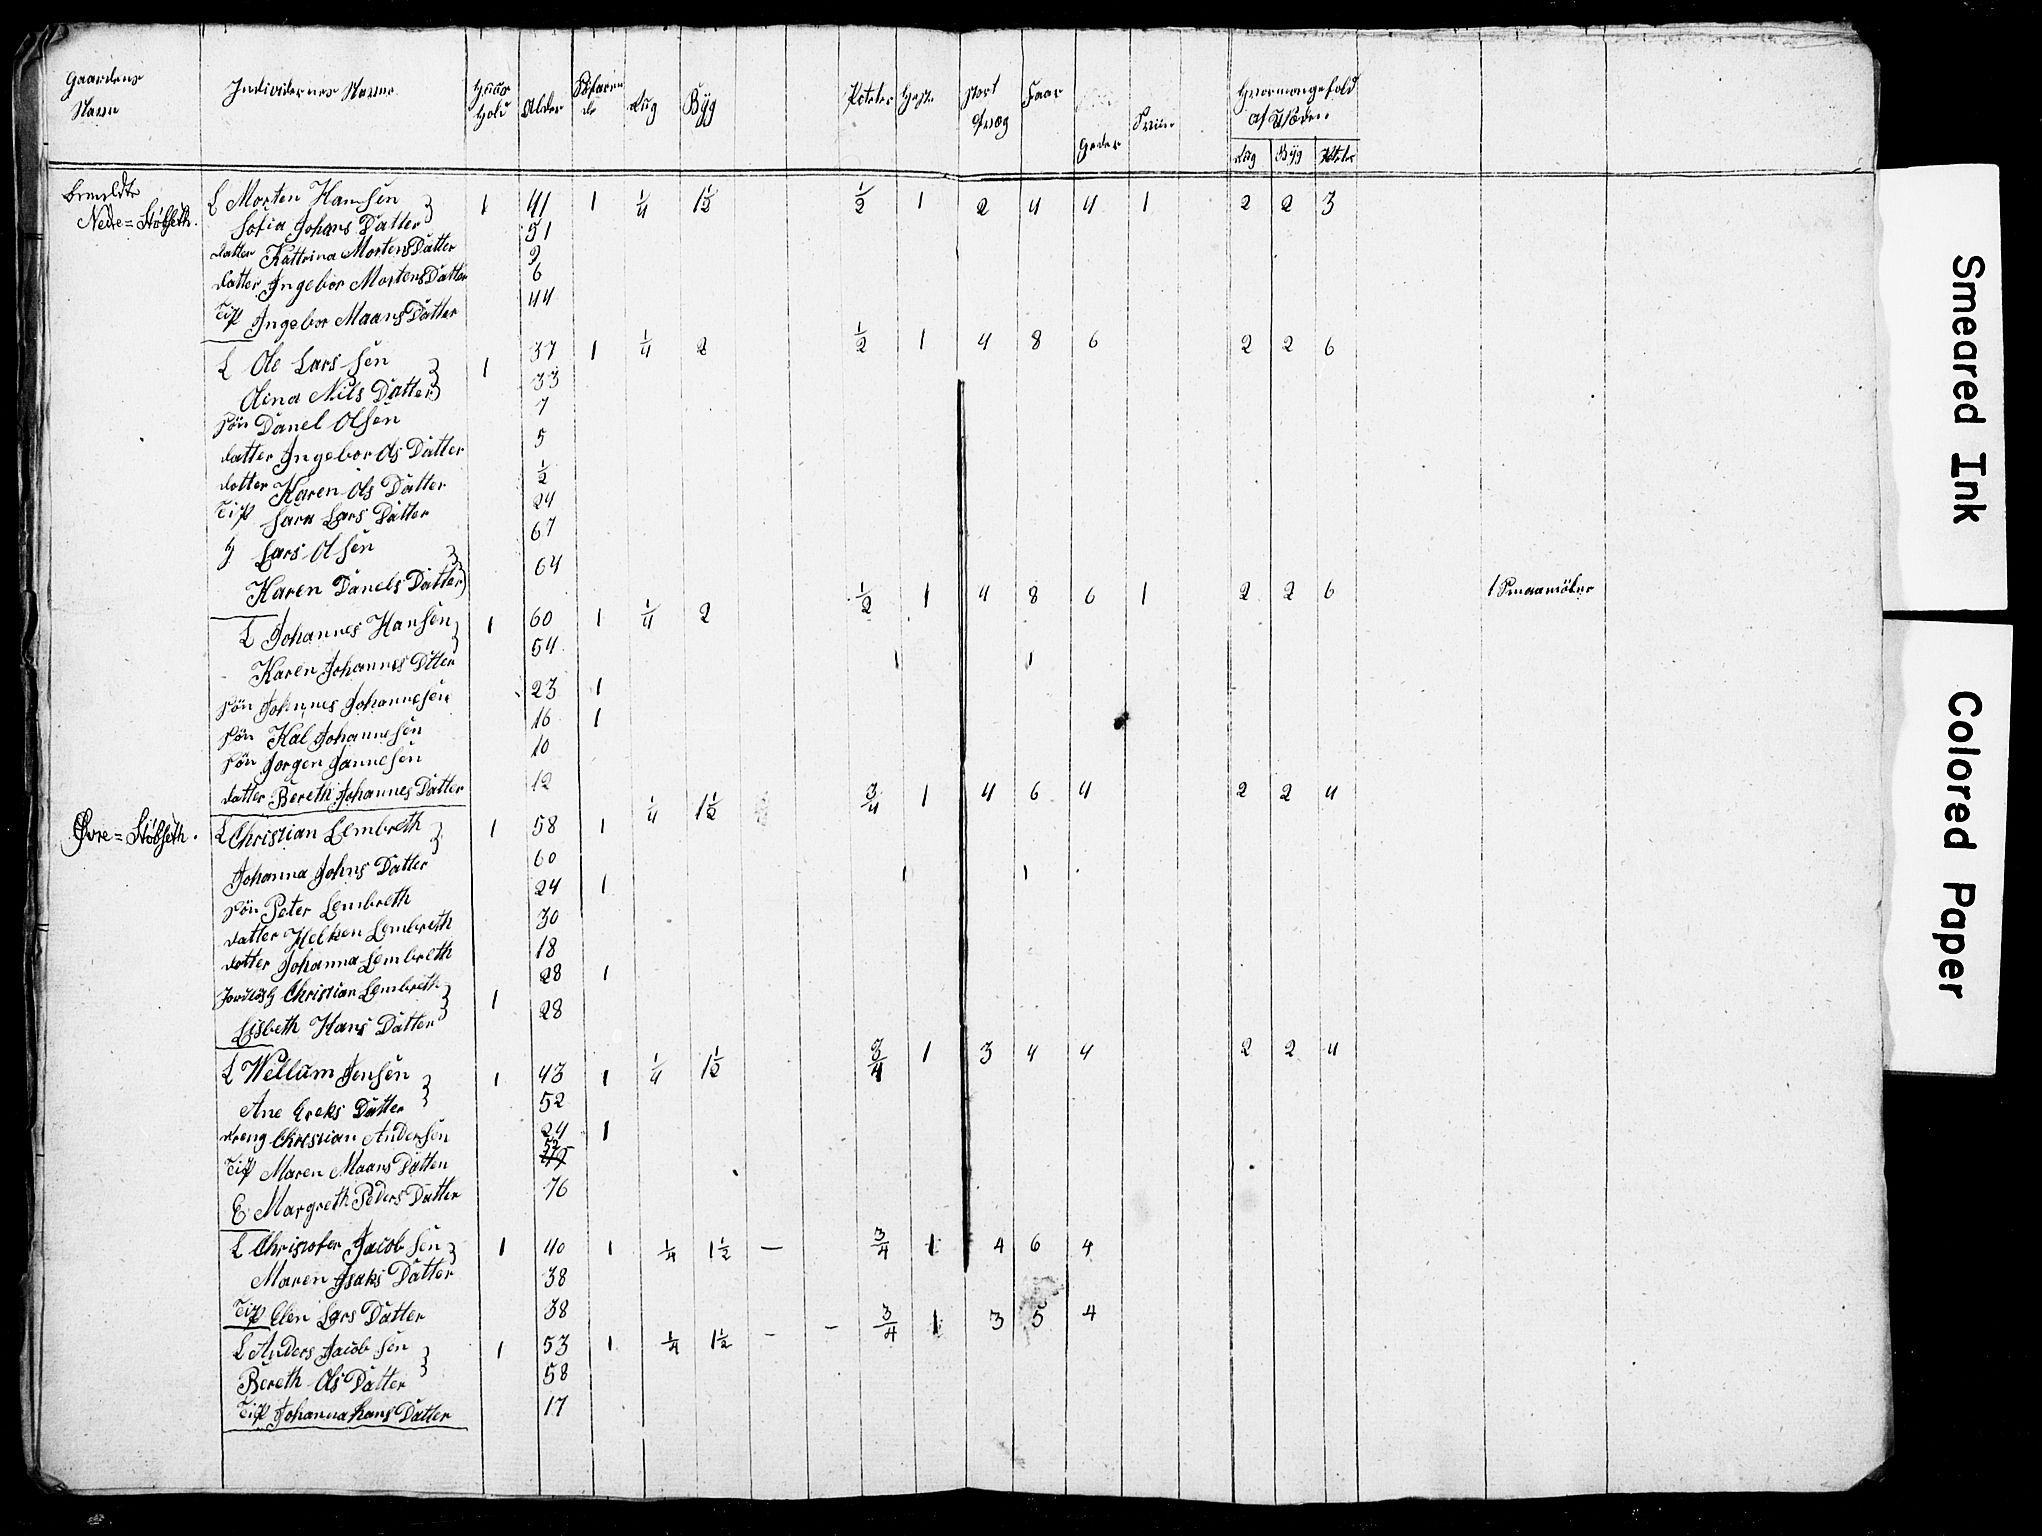 Gaardens Navn | Individernes Navne | Huus Hold | Alder | Söfarende | Rug | Byg | Poteter | Heste | stort qvæg | Faar | Geder | Sviin | Hvormangefold af Udsæden
Rug | Byg | Poteter
Nedre=Stöbseth. L Morten Hansen 1 41 1 1/4 1 1/2 1/2 1 2 4 4 1 2 2 3
Sofia Johans Datter 51
datter Kattrina Mortens Datter 9
datter Ingebor Mortens Datter 6
Tip Ingebor Maans Datter 44
L Ole Lars Sen 1 37 1 1/4 2 1/2 1 4 8 6 2 2 6
Olina Nils Datter 33
sön Danel Olsen 7
datter Ingebor Ols Datter 5
datter Karen Ols Datter 1/2
Tip Sara Lars Datter 24
Lars Olsen 67
Karen Danels Datter 64
L Johannes Hansen 1 60 1 1/4 2 1/2 1 4 8 6 1 2 2 6 1
Karen Johannes Dtter 54 1 1
sön Johnnes Johannesen 23 1
sön Kal Johannesen 16 1
sön Jorgen Jannesen 10
datter Bereth Johannes Datter 12
Øvre=Stöbseth. L Christian Lembreth 1 58 1 1/4 1 1/2 3/4 1 4 6 4 2 2 4
Johanna Johns Datter 60
sön Peter Lembreth 24 1 1 1
datter Helken Lembreth 30
datter Johanna Lembreth 18
Christian Lembreth 1 28 1
Lisbeth Hans Datter 28
L Wellam Jensen 1 43 1 1/4 1 1/2 3/4 1 3 4 4 2 2 4
Ane Ereks Datter 52
dreng Christian Andersen 24 1
Tip Maren Maans Datter 52
E Margreth Peders Datter 76
L Christofer Jacob Sen 1 40 1 1/4 1 1/2 — 3/4 1 4 6 4
Maren Isaks Datter 38
Tip Elen Lars Datter 38
L Anders Jacob Sen 1 53 1 1/4 1 1/2 - - 3/4 1 3 5 4
Bereth Ols Datter 58
Tip Johanna Hans Datter 17
Smeared Ink
Colored Paper